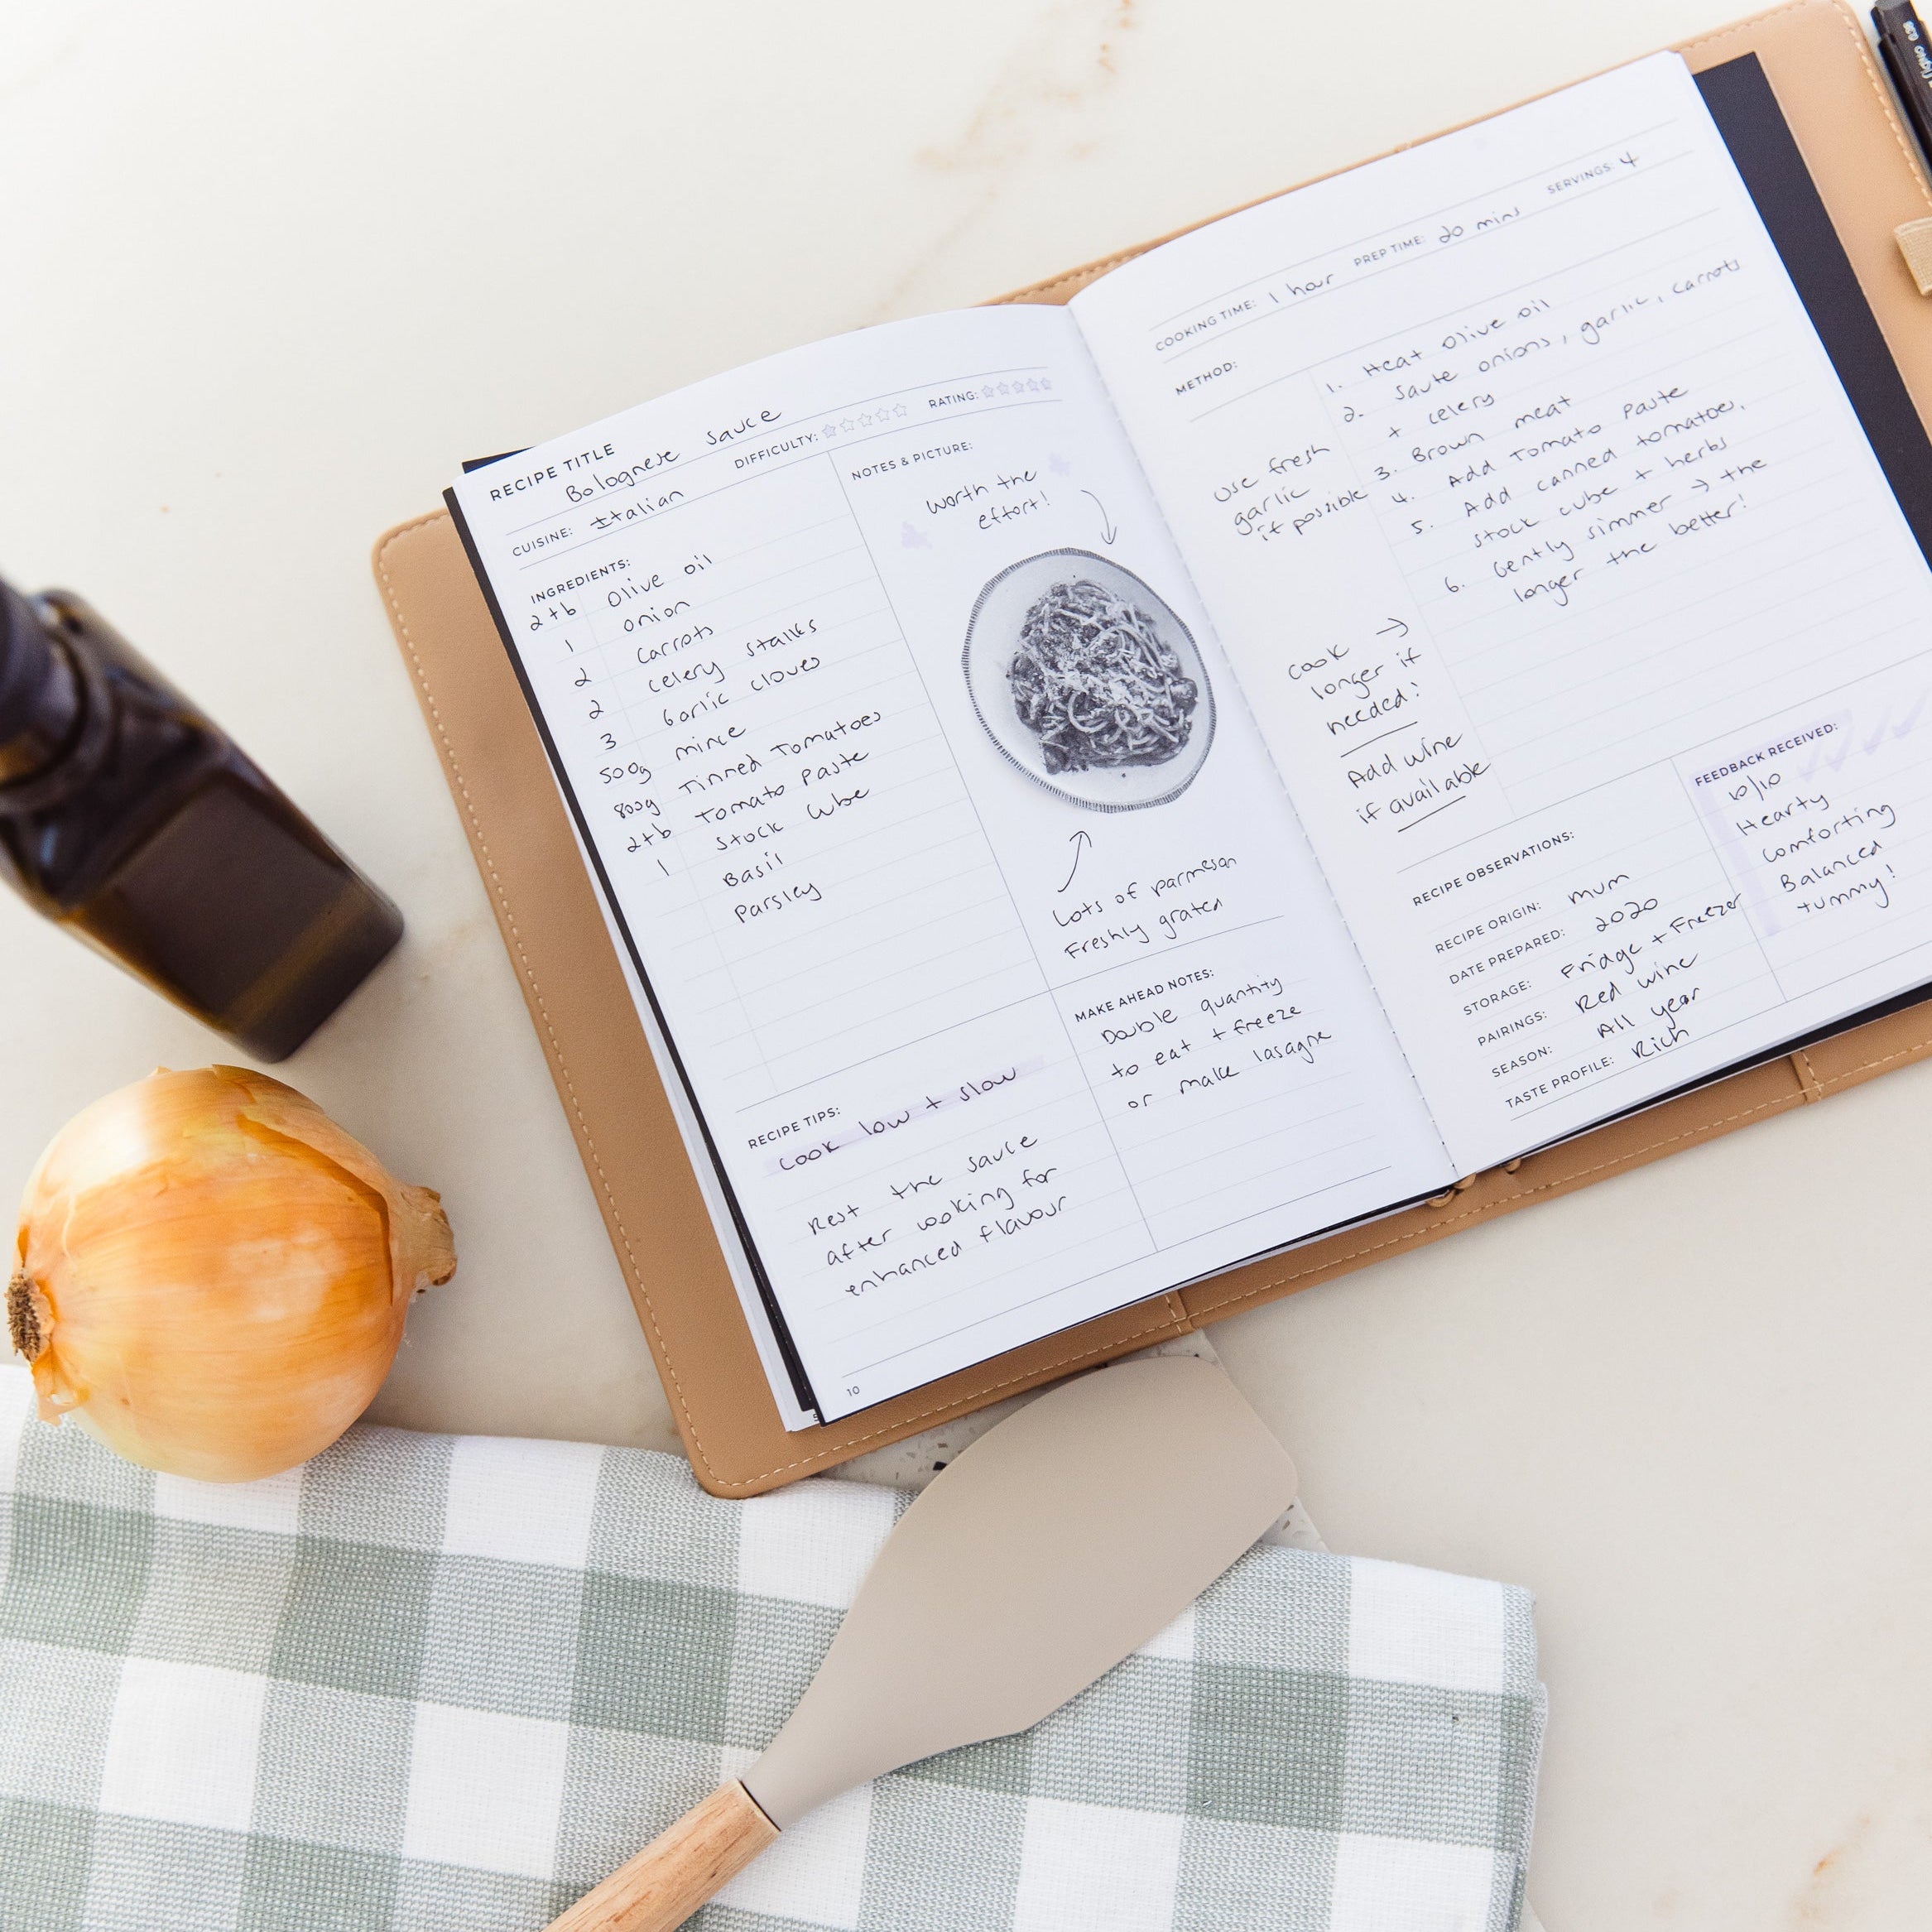 RECIPE TITLE
Bolognese Sauce
CUISINE: Italian
DIFFICULTY:
RATING:
INGREDIENTS:
2tb Olive oil
1 onion
2 carrots
2 celery stalks
3 Garlic cloves
500g mince
800g Tinned Tomatoes
2tb Tomato Paste
1 Stock Cube
Basil
Parsley
NOTES & PICTURE:
Worth the
effort!
Lots of parmesan
Freshly grated
RECIPE TIPS:
Cook low + slow
Rest the sauce
after cooking for
enhanced flavour
MAKE AHEAD NOTES:
Double quantity
to eat + freeze
or make lasagne
10
COOKING TIME: 1 hour
PREP TIME: 20 mins
SERVINGS: 4
METHOD:
1. Heat Olive oil
2. Saute onions, garlic, carrots
+ celery
3. Brown meat
4. Add Tomato Paste
5. Add canned tomatoes,
stock cube + herbs
6. Gently simmer → the
longer the better!
Use fresh
garlic
if possible
Cook →
longer if
needed!
Add wine
if available
RECIPE OBSERVATIONS:
RECIPE ORIGIN: mum
DATE PREPARED: 2020
STORAGE: Fridge + Freezer
PAIRINGS: Red wine
SEASON: All year
TASTE PROFILE: Rich
FEEDBACK RECEIVED:
10/10
Hearty
Comforting
Balanced
Yummy!